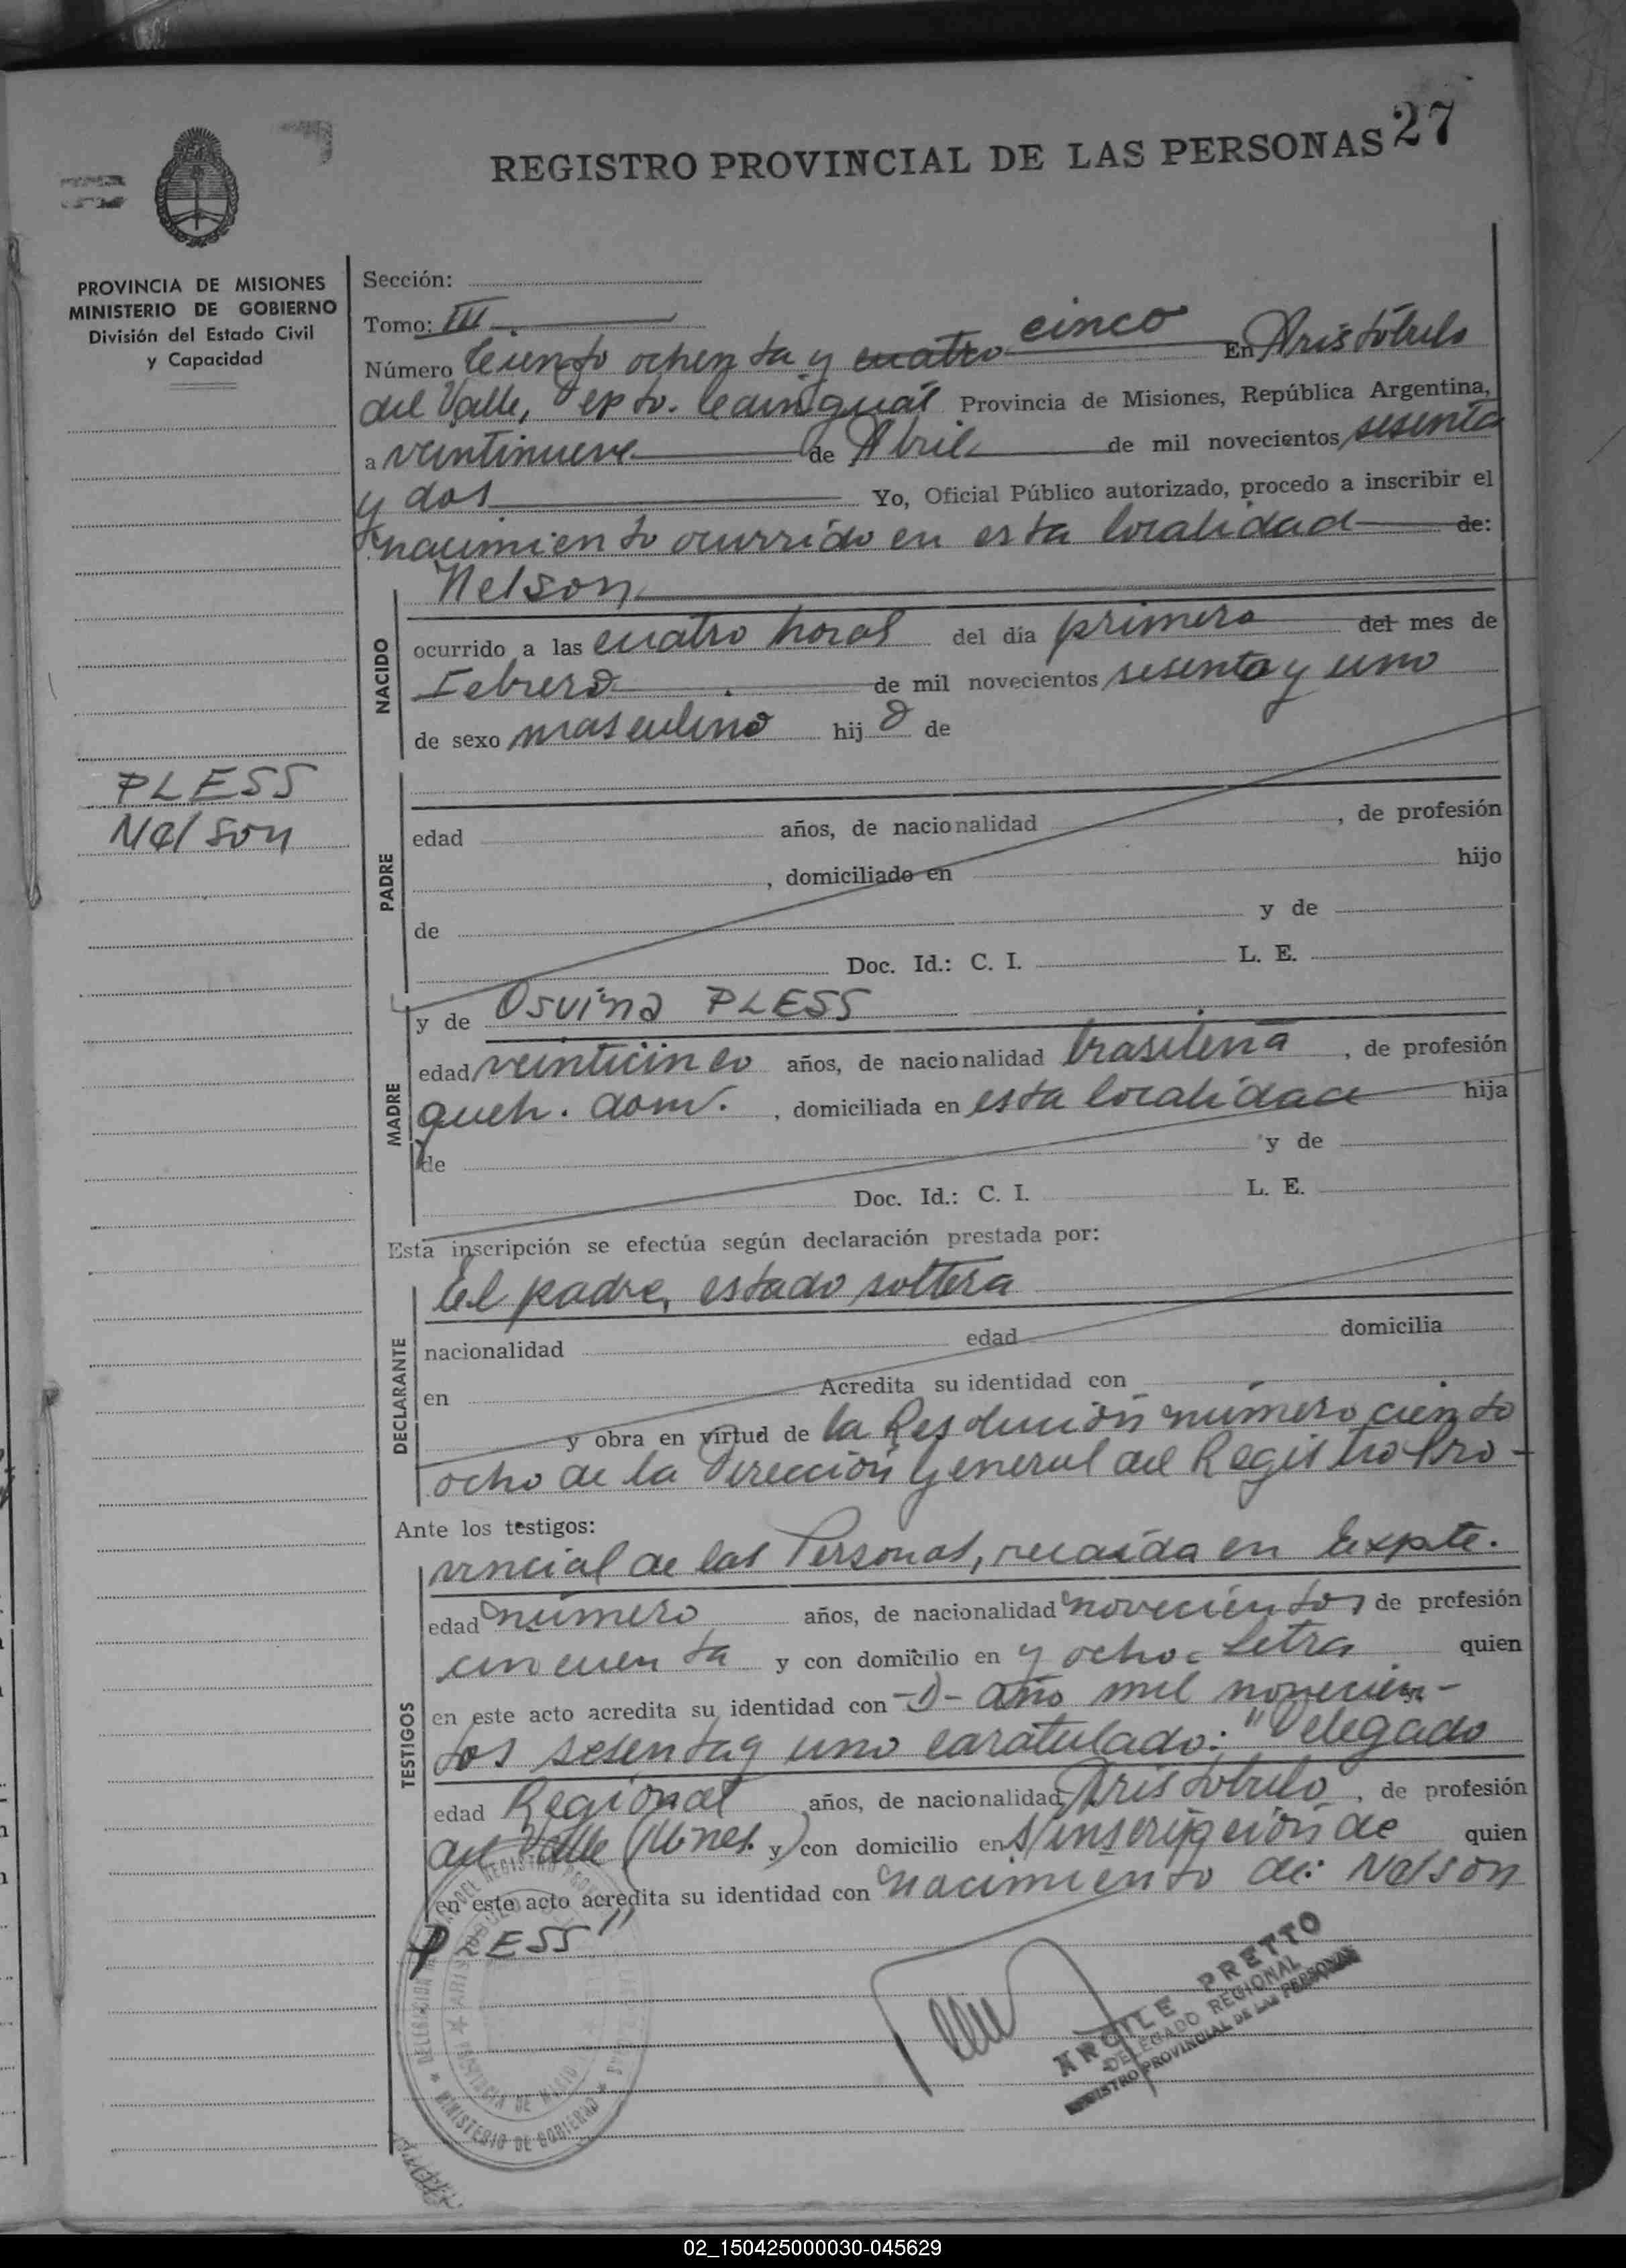 27
REGISTRO PROVINCIAL DE LAS PERSONAS
PROVINCIA DE MISIONES
MINISTERIO DE GOBIERNO
División del Estado Civil
y Capacidad
Sección:
Tomo: III.
cinco
Número Ciento ochenta y cuatro En Aristóbulo
del Valle, Depto. Cainguás Provincia de Misiones, República Argentina,
a veintinueve de Abril de mil novecientos sesenta
y dos Yo, Oficial Público autorizado, procedo a inscribir el
nacimiento ocurrido en esta localidad de:
NACIDO
Nelson
ocurrido a las cuatro horas del día primero del mes de
Febrero de mil novecientos sesenta y uno
de sexo masculino hij o de
PLESS
Nelson
PADRE
edad años, de nacionalidad , de profesión
, domiciliado en hijo
de y de
Doc. Id.: C. I. L. E.
MADRE
y de Osvina PLESS
edad veinticinco años, de nacionalidad brasileña , de profesión
queh. dom. , domiciliada en esta localidad hija
de y de
Doc. Id.: C. I. L. E.
Esta inscripción se efectúa según declaración prestada por:
DECLARANTE
El padre, estado soltera
nacionalidad edad domicilia
en Acredita su identidad con
y obra en virtud de la Resolución número ciento
ocho de la Dirección General del Registro Pro-
Ante los testigos:
TESTIGOS
vincial de las Personas, recaída en Expte.
edad número años, de nacionalidad novecientos de profesión
cincuenta y con domicilio en y ocho- Letra quien
en este acto acredita su identidad con -D- año mil novecien-
tos sesenta y uno caratulado: "Delegado
edad Regional años, de nacionalidad Aristóbulo , de profesión
del Valle (Mnes. y) con domicilio en s/inscripción de quien
en este acto acredita su identidad con nacimiento de: Nelson
PLESS"
DELEGADO REGIONAL
REGISTRO PROVINCIAL DE LAS PERSONAS
PROVINCIA DE MISIONES
MINISTERIO DE GOBIERNO
02_150425000030-045629